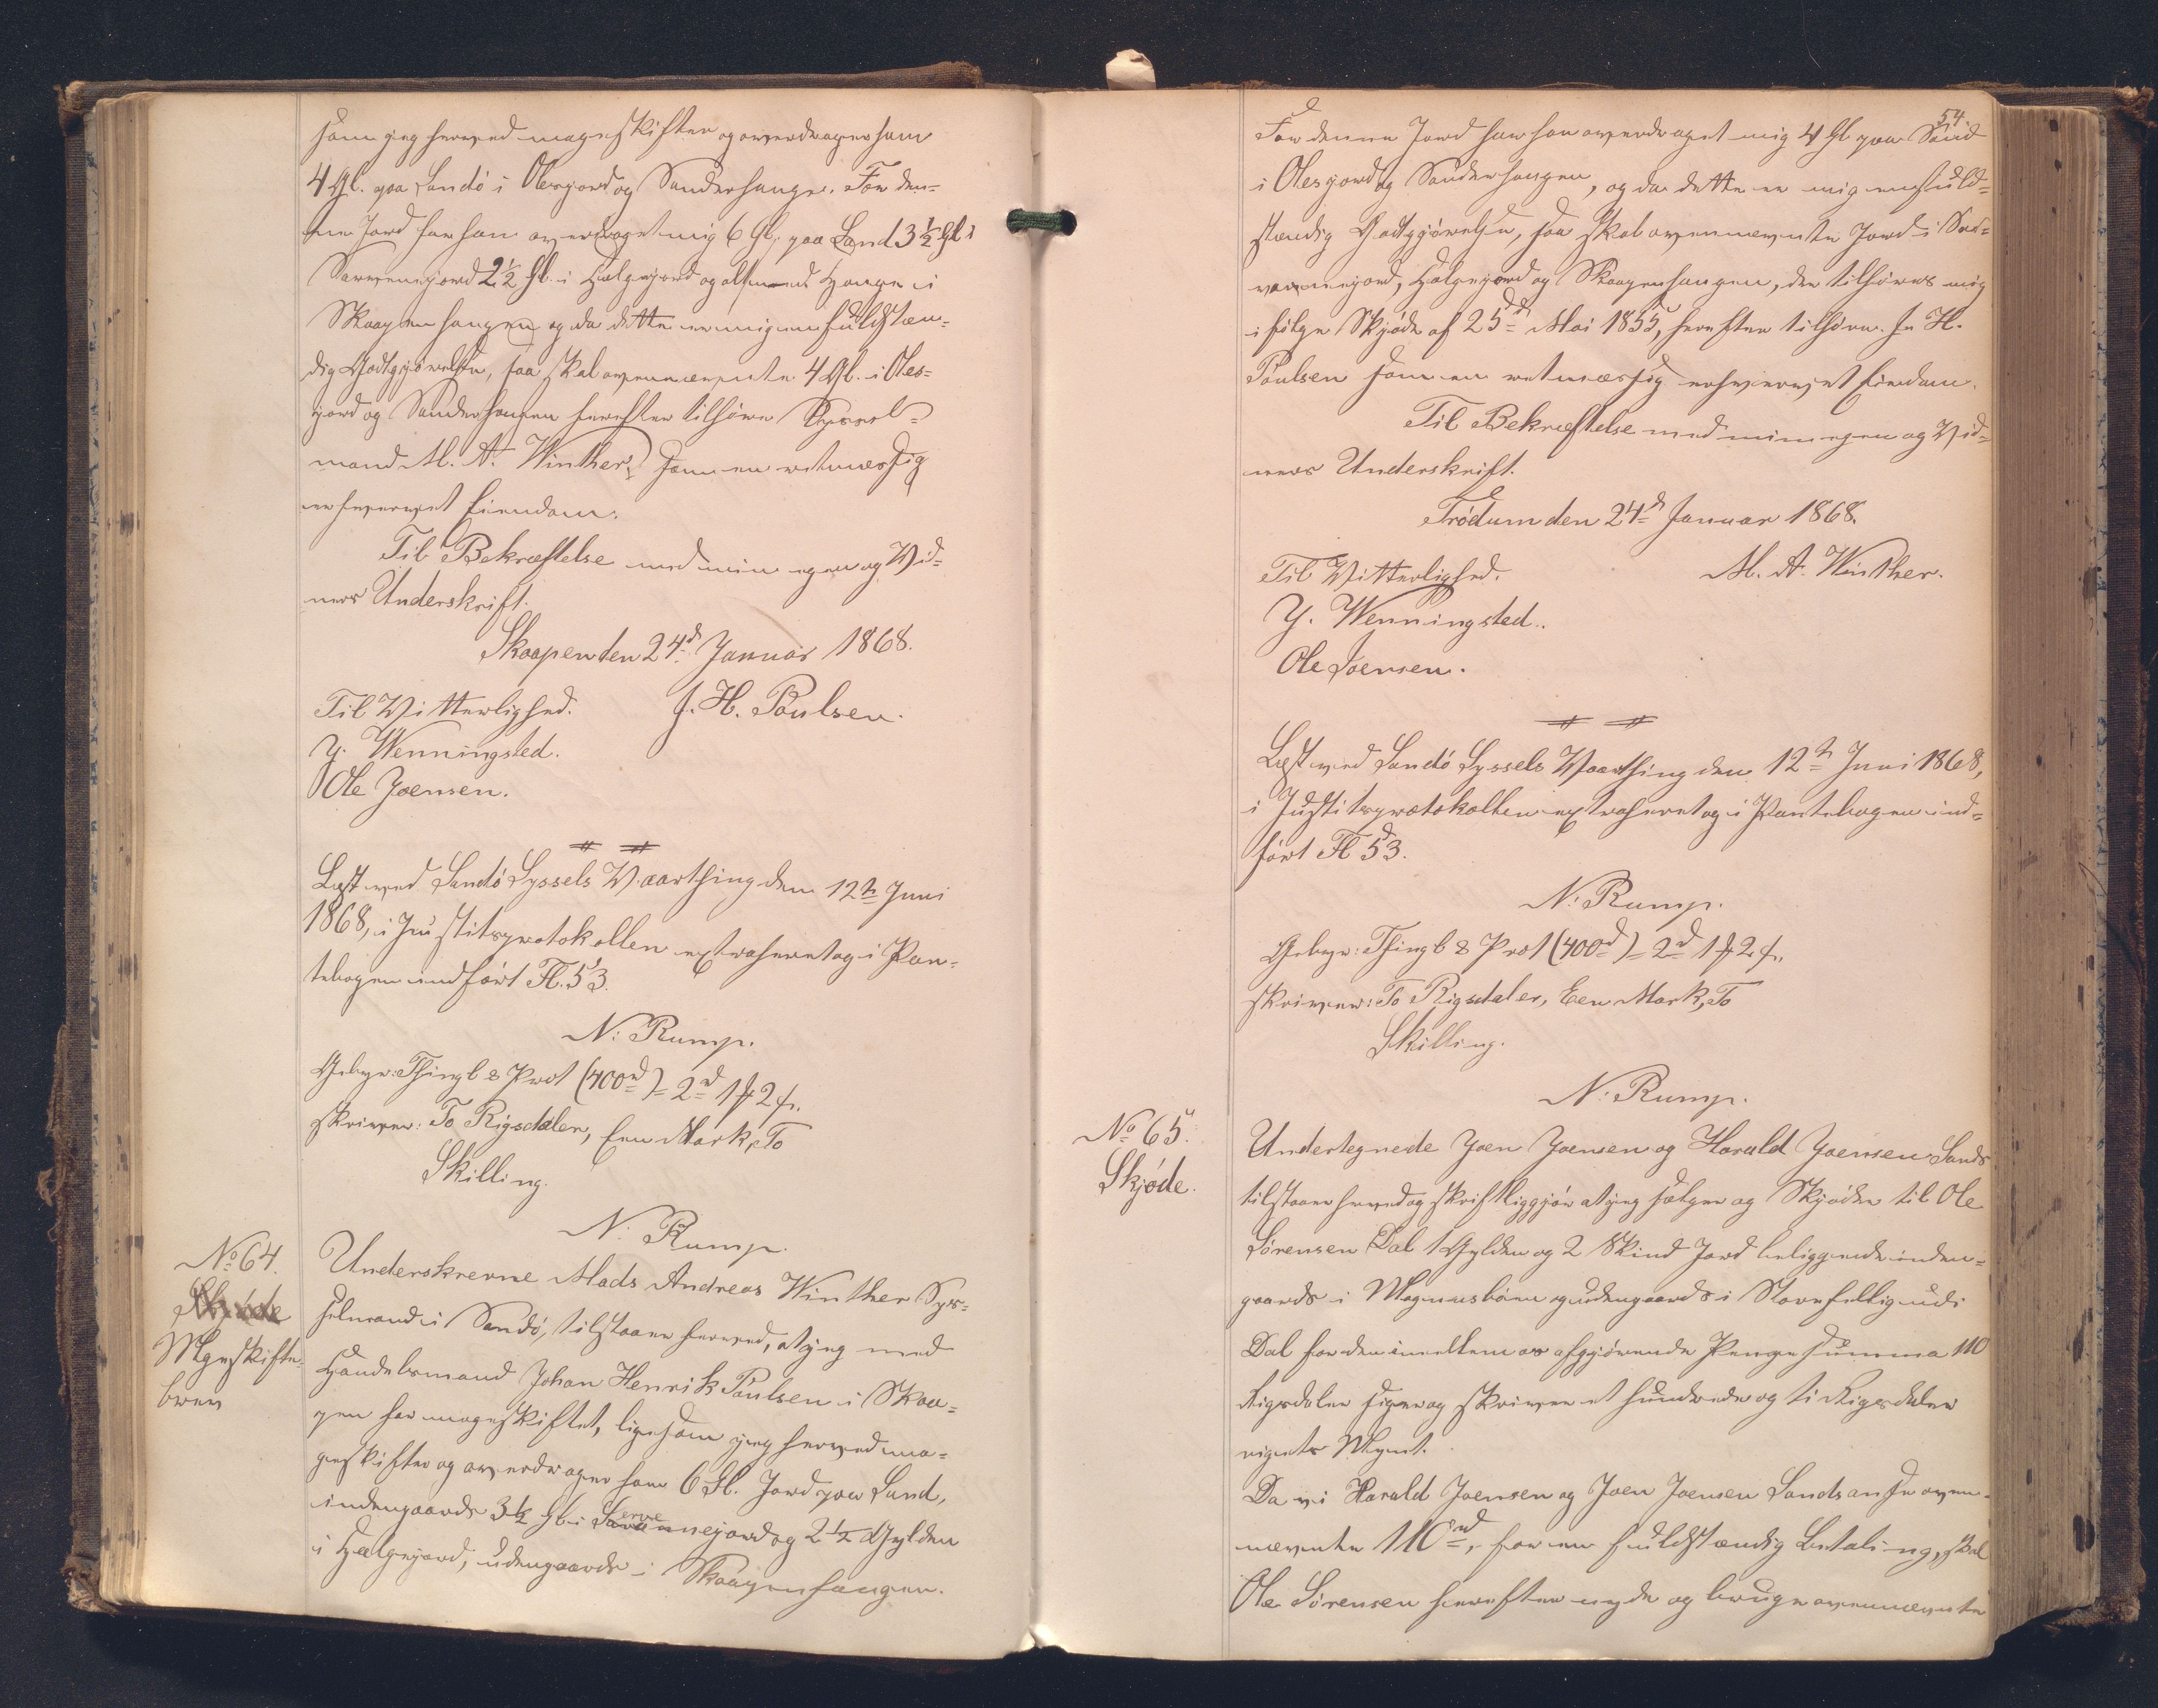 som jeg herved mageskifter og overdrager ham
4 Gl. paa Sandö i Olesjord og Sanderhauge. For den=
ne Jord har han overdraget mig 6 Gl. paa Sand 3½ Gl i
Servensjord 2½ Gl. i Hælgejord og alt med Hauge i
Skaapenhaugen og da dette er mig en fuldstæn=
dig Godtgjörelse, saa skal ovennævnte 4 Gl. i Oles=
jord og Sanderhaugen herefter tilhöre Syssel=
mand M. A. Winther, som en retmæssig
erhvervet Eiendom.
Til Bekræftelse med min egen og Vid=
ners Underskrift.
Skaapen den 24d Januar 1868.
Til Vitterlighed. J. H. Poulsen.
Y. Wenningsted.
Ole Joensen.
Læst ved Sandö Syssels Vaarthing den 12te Juni
1868, i Justitsprotokollen extraheret og i Pan=
tebogen indfört Fl. 53.
N: Rump.
Gebyr: Thingl & Prot (400rd) = 2rd 1 ℔ 2 s.
skriver: To Rigsdaler, Een Mark, To
Skilling.
N. Rump.
No 64.
Skjöde
Mageskifte=
brev
Underskrevne Mads Andreas Winther Sys=
selmand i Sandö, tilstaaer herved, at jeg med
Handelsmand Johan Henrik Poulsen i Skaa=
pen har mageskiftet, ligesom jeg herved ma=
geskifter og overdrager ham 6 Gl. Jord paa Sand,
indengaards 3½ Gl. i Servennejord og 2½ Gylden
i Hælgejord, udengaards i Skaapenhaugen.
54.
For denne Jord har han overdraget mig 4 Gl paa Sand
i Olesjord og Sanderhaugen, og da dette er mig en fuld=
stændig Godtgjörelse, saa skal ovennævnte Jord i Ser=
vennejord, Hælgejord og Skaapenhaugen, der tilhöres mig
ifölge Skjöde af 25de Mai 1855, herefter tilhöre J. H.
Poulsen som en retmæssig erhvervet Eiendom.
Til Bekræftelse med min egen og Vid=
ners Underskrift.
Trödum den 24d Januar 1868.
Til Vitterlighed. M. A. Winther.
Y. Wenningsted.
Ole Joensen.
Læst ved Sandö Syssels Vaarthing den 12te Juni 1868,
i Justitsprotokollen extraheret og i Pantebogen ind=
fört Fl 53.
N: Rump.
Gebyr: Thingl & Prot (400rd) = 2rd 1 ℔ 2 s.
skriver: To Rigsdaler, Een Mark, To
Skilling.
N: Rump.
No 65.
Skjöde.
Undertegnede Joen Joensen og Harald Joensen Sands
tilstaaer herved og skriftliggjör at jeg sælger og Skjöder til Ole
Sörensen Dal 1 Gylden og 2 Skind Jord beliggende inden=
gaards i Magnusböen og udengaards i Storefellig udi
Dal for den imellem os afgjörende Penge Summa 110
Rigsdaler siger og skriver et hundrede og ti Rigsdaler
rigets Mynt.
Da vi Harald Joensen og Joen Joensen Sands anse oven=
nævnte 110rd, for en fuldstændig Betaling, skal
Ole Sörensen herefter nyde og bruge ovennævnte